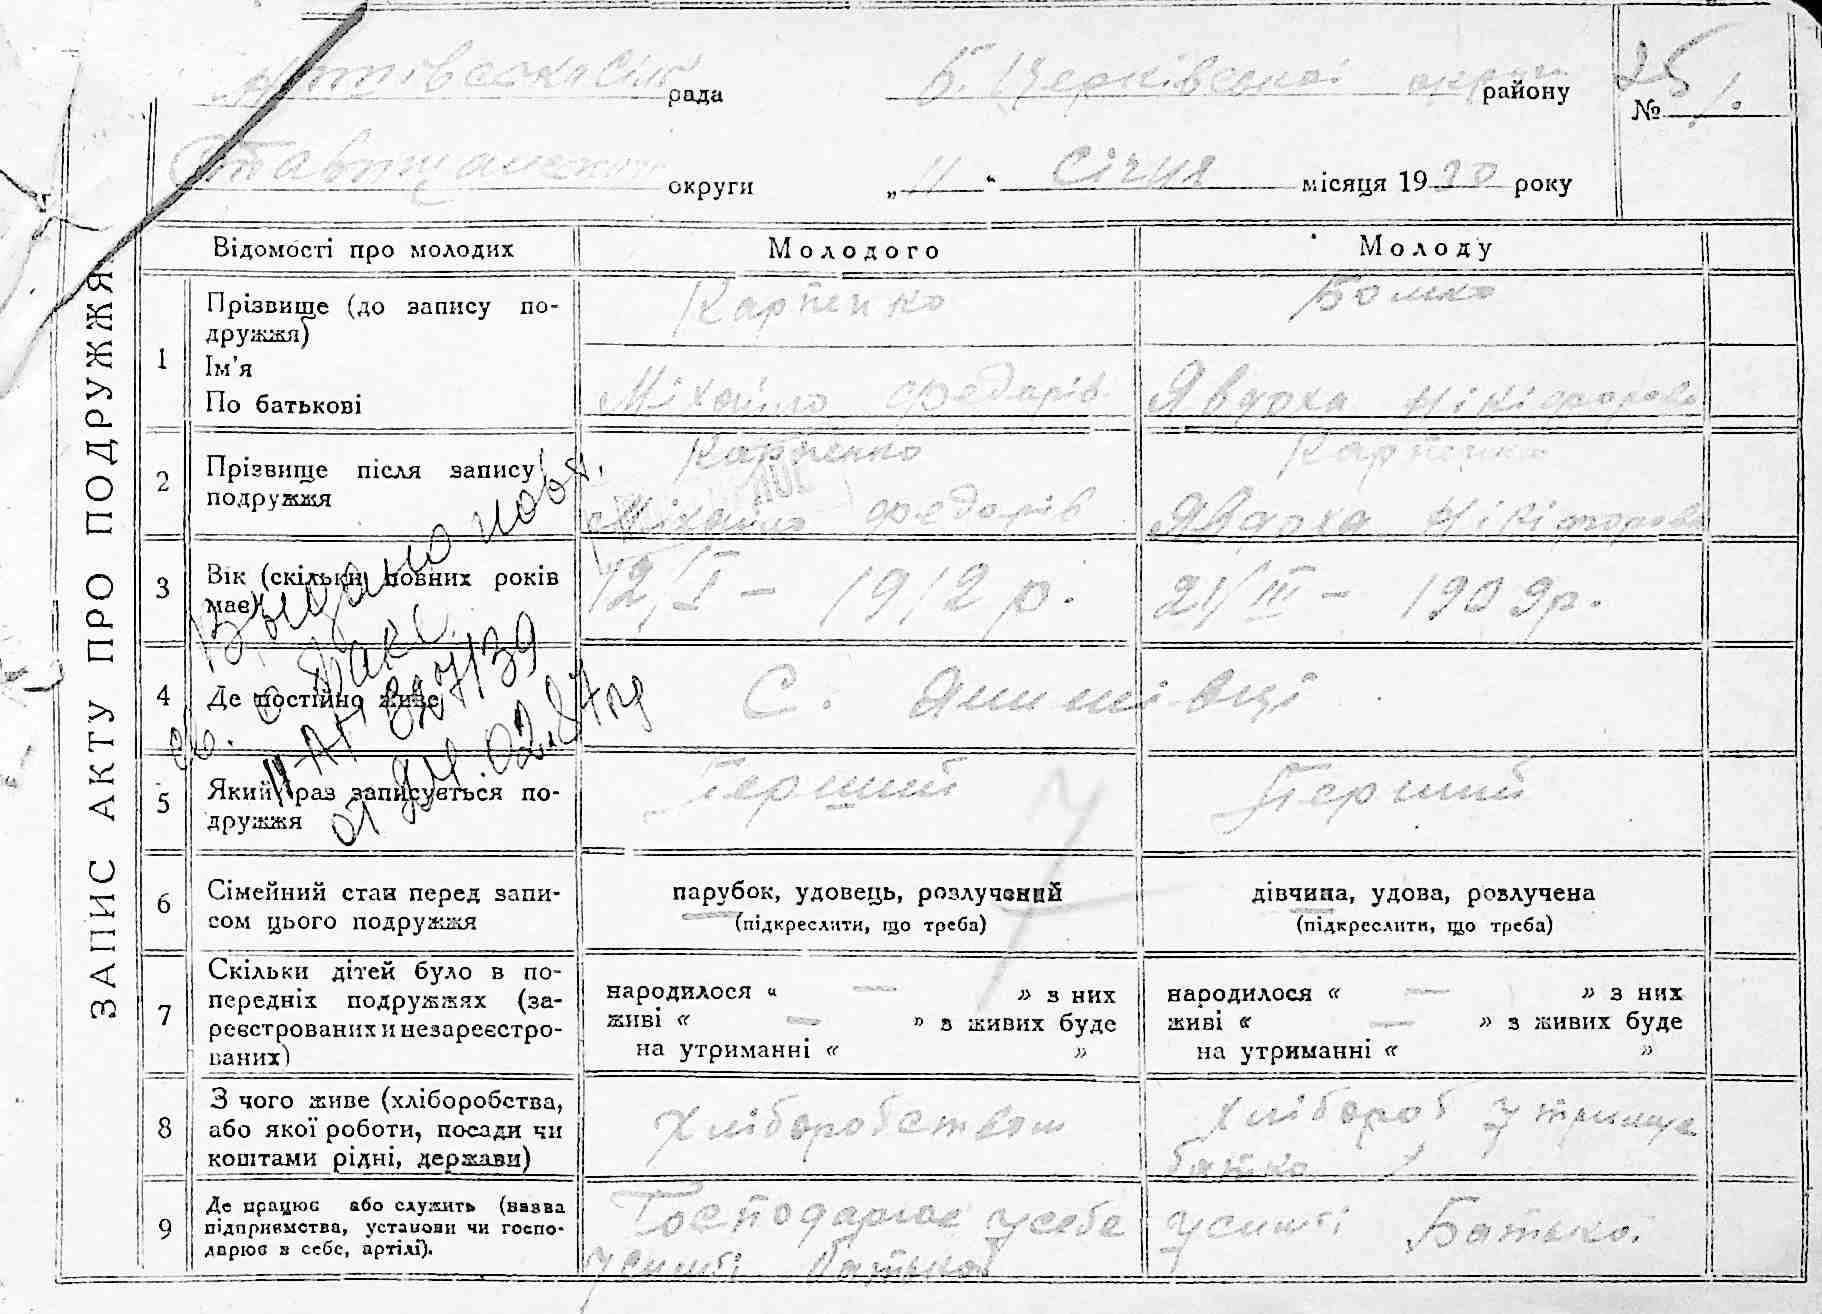 рада Б. Церківської округи району № 25/1.
Ставищанськ округи „ 11 “ Січня місяця 1930 року
ЗАПИС АКТУ ПРО ПОДРУЖЖЯ
Відомості про молодих Молодого Молоду
1 Прізвище (до запису по-
дружжя) Карпенко Бомко
Ім'я
По батькові Міхайло Федорів Явдоха Нікіфорова
2 Прізвище після запису
подружжя Карпенко Карпенко
Міхайло Федорів Явдоха Нікіфорова
3 Вік (скільки повних років
має) 12/I – 1912 р. 21/III – 1909 р.
4 Де постійно живе С.
5 Який раз записується по-
дружжя Перший Перший
Выдано повт.
св. о браке
II-АГ 327139
от 02.87
6 Сімейний стан перед запи-
сом цього подружжя
парубок, удовець, розлучений
(підкреслити, що треба)
дівчина, удова, розлучена
(підкреслити, що треба)
7 Скільки дітей було в по-
передніх подружжях (за-
реєстрованих и незареєстро-
ваних)
народилося « — » з них
живі « — » з живих буде
на утриманні « »
народилося « — » з них
живі « — » з живих буде
на утриманні « »
8 З чого живе (хліборобства,
або якої роботи, посади чи
коштами рідні, держави)
хліборобством
хлібороб утрима
батько
9 Де працює або служить (назва
підприємства, установи чи госпо-
дарює в себе, артілі).
Господарює у себе
батька
Батька.